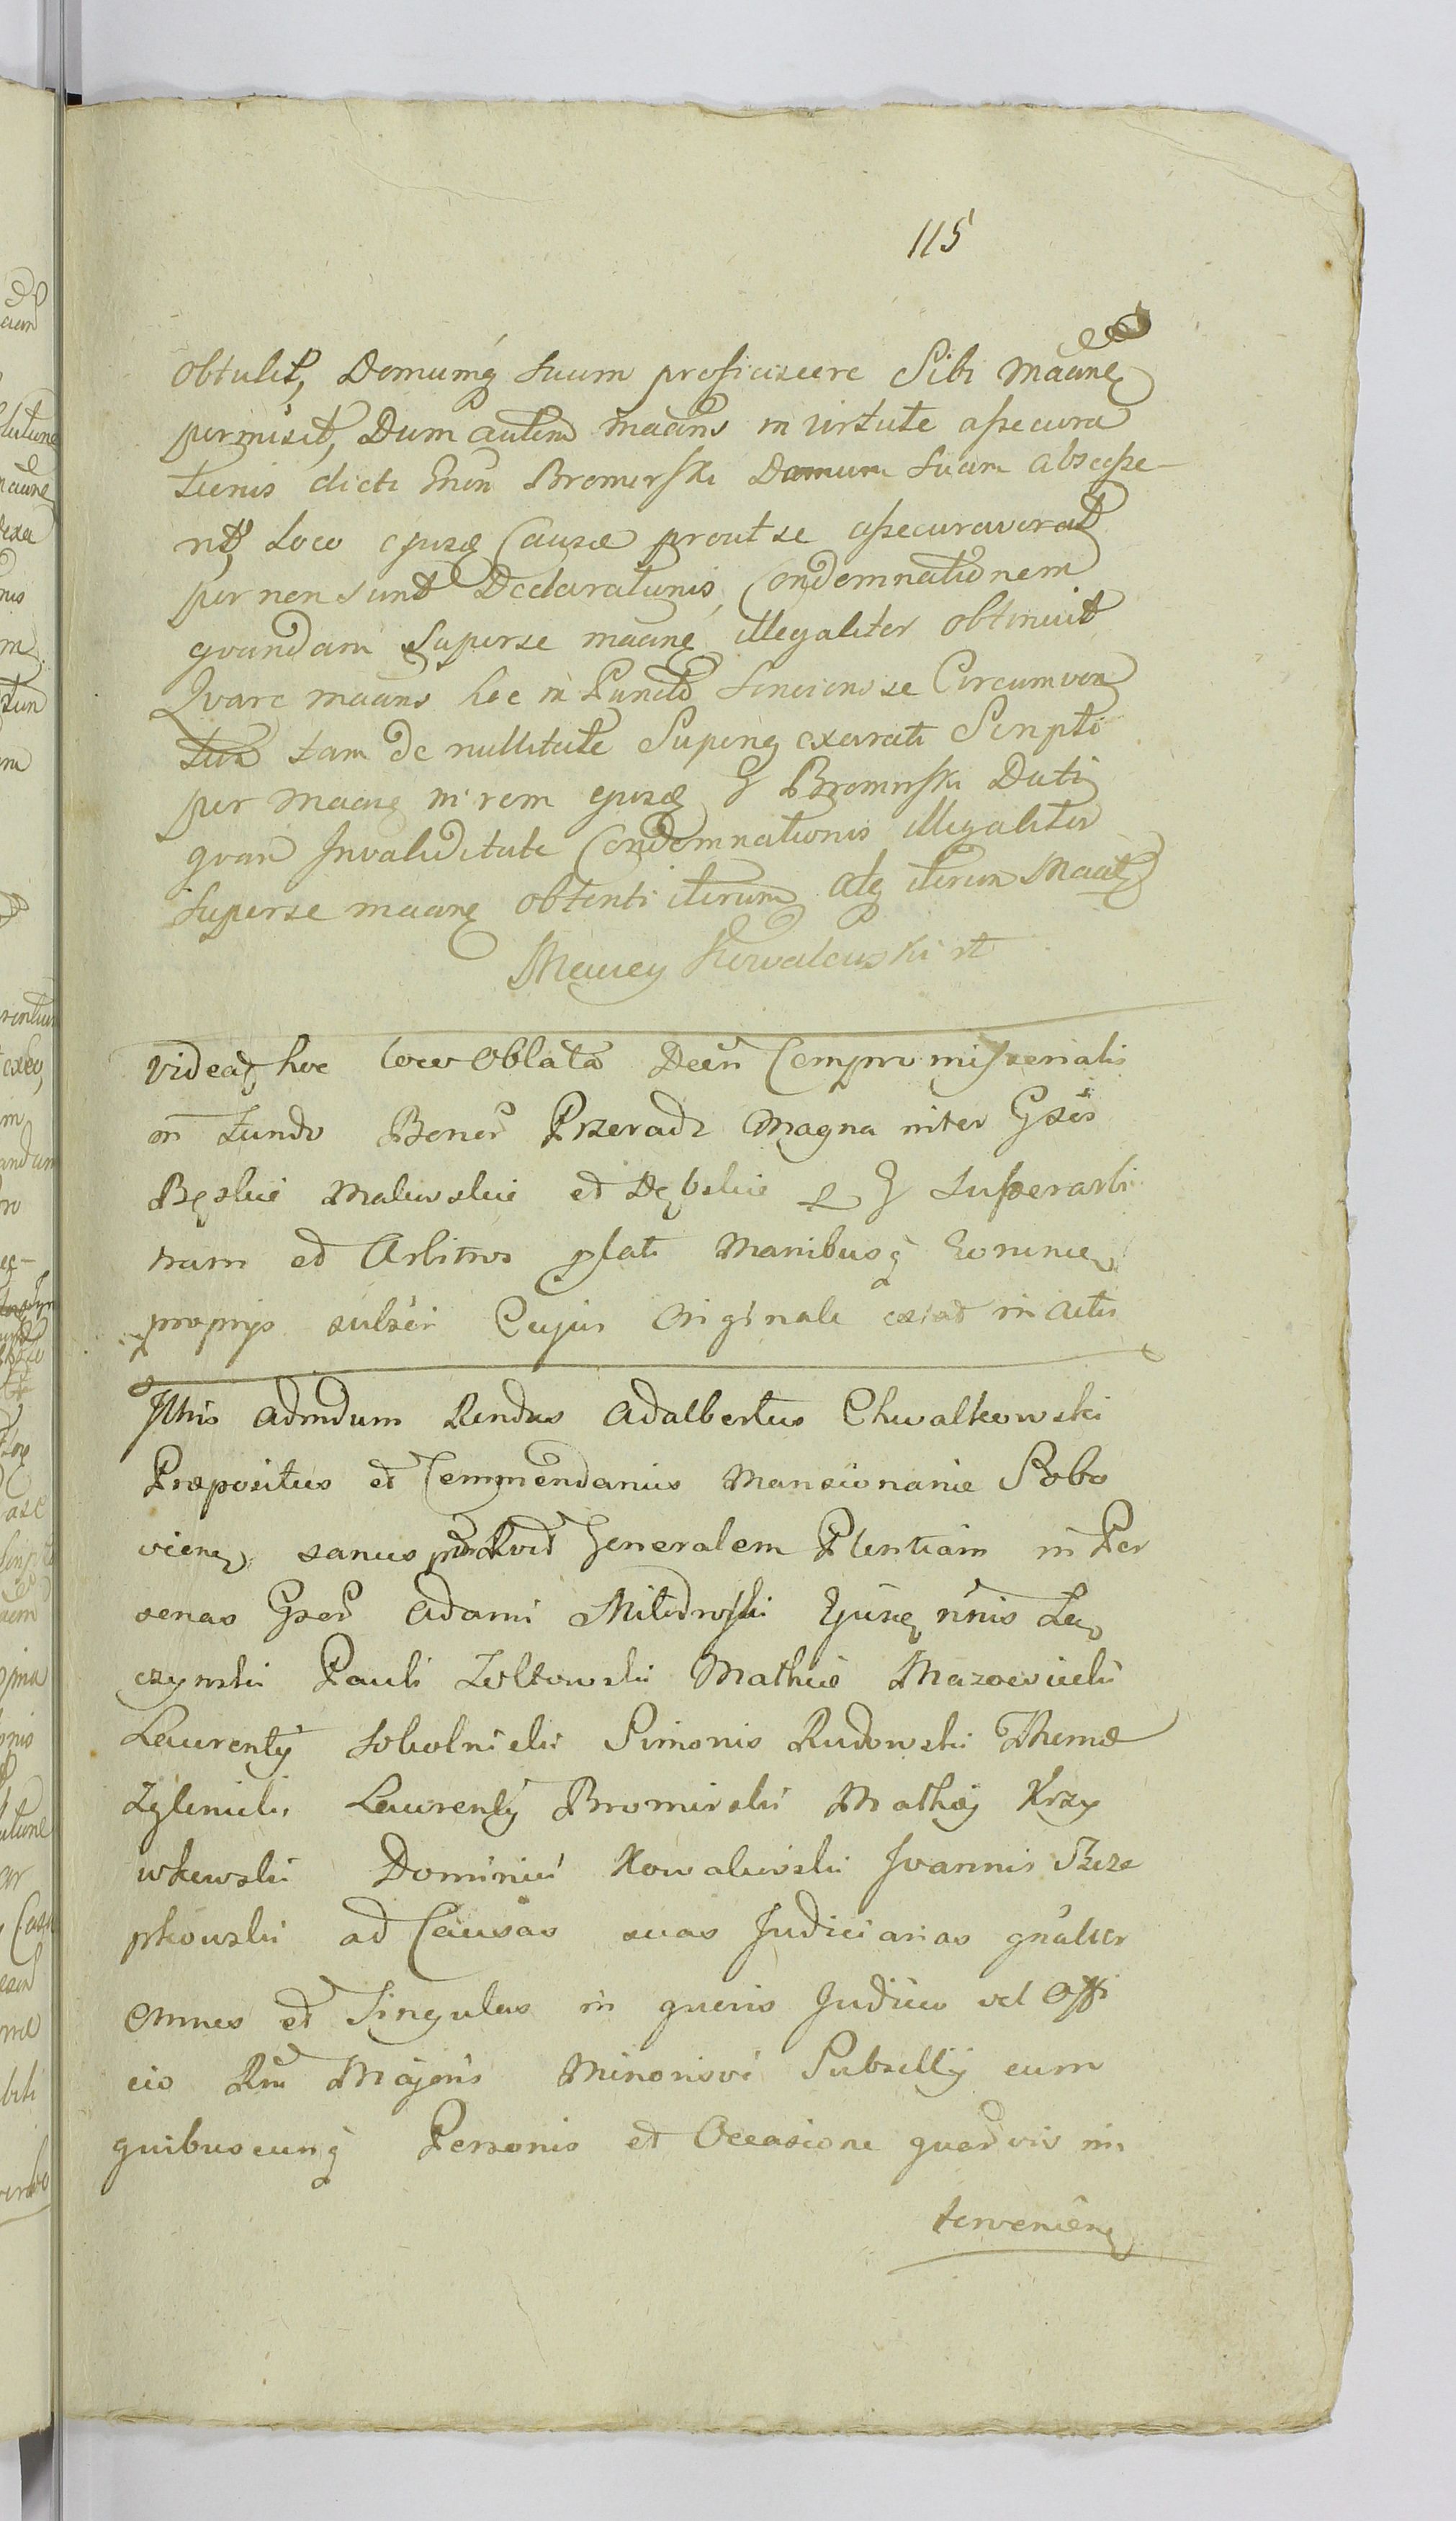 115
obtulit, Domumq suum proficiscere Sibi maane
permisit, Dum autem maans in virtute assecura
tionis dicti Bromirski Domum suam abscesse-
rit, Loco ejusq Causæ prout se assecuraverat
per non sunt Declarationis, Condemnationem
quandam superse maane illegaliter obtinuit
Quare maans hoc in Puncto senciens se Circumven
tum tam de nullitate Superiq exarati Scripti
per maane in rem ejusq G Bromirski Dati
quam Invaliditate Condemnationis illegaliter
superse maane obtenti iterum atq iterum Maatq
Maciey Kowalewski
Videatq hoc loco Oblata Decri Compromissorialis
in fundo Bonor Przeradz Magna inter Gsos
Bęskie Malewskie et Dębskie p G Superarbi
trum et Arbitros plati Manibusq Eorunq
proprijs subscr Cujus Originale exiat in actis
Illris admdum Rendus Adalbertus Chwalkowski
Præpositus et Commendarius Mansionarie Sobo
viensq sanus Generalem Plentiam in Per
sonas Gsor Adami Milodrowski Ejusq Lę
czynski Pauli Zoltowski Mathiæ Mazowiecki
Laurentij Sokolnicki Simonis Rudowski Thomæ
Zglinicki Laurentij Bromirski Mathæj Krzy
wkowski Dominici Kowalewski Joannis Rze
pkowski ad Causas suas Judiciarias gnaliter
Omnes et Singulas in quovis Judicio vel Offi
cio Rni Majoris Minorisve Subsellij cum
quibuscunq Personis et Occasione quarvis in
terveniens